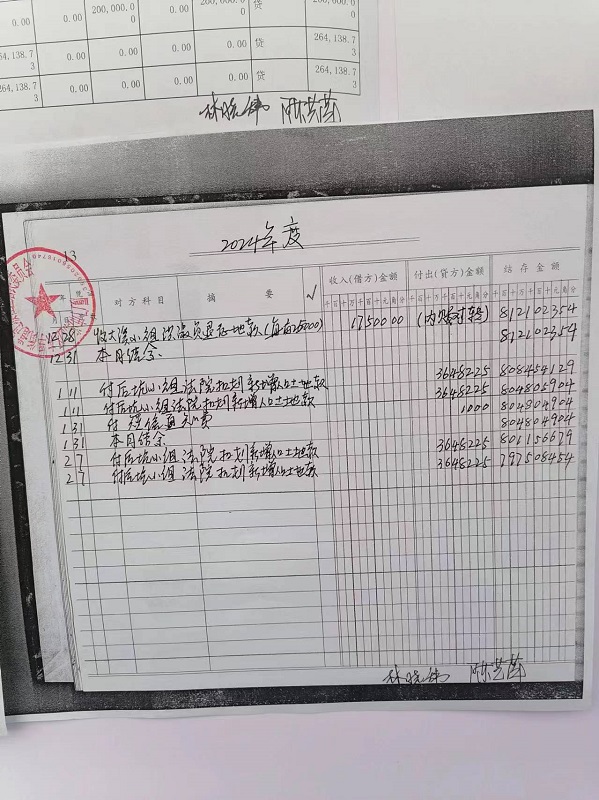 0.00 0.00 200,000.00 0.00 贷 200,000.00
264,138.73 0.00 0.00 0.00 贷 264,138.73
264,138.73 0.00 0.00 0.00 贷 264,138.73
2024年度
13
年 对方科目 摘要 √ 收入(借方)金额 付出(贷)方金额 结存金额
12 28 收 小组 土地款 1750000 (内账对转) 812102354
12 31 本月结余 812102354
1 11 付后坑小组法院扣划新增人口土地款 3648225 808454129
1 11 付后坑小组法院扣划新增人口土地款 3648225 804805904
1 31 付 费 1000 804804904
1 31 本月结余 804804904
2 7 付后坑小组法院扣划新增人口土地款 3648225 801156679
2 7 付后坑小组法院扣划新增人口土地款 3648225 797508454